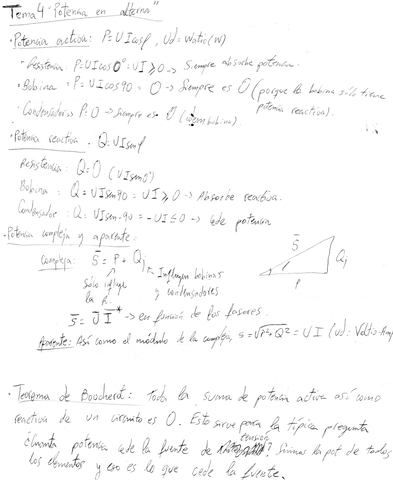 Tema 4 "Potencia en alterna"
· Potencia activa: P=UIcosφ, Ud=Watio(W)
· Resistencia: P=UIcos0°=UI≥0 → Siempre absorbe potencia.
· Bobina: P=UIcos90=0 → Siempre es 0 (porque la bobina sólo tiene
potencia reactiva).
· Condensador: P=0 → Siempre es 0 (idem bobina).
· Potencia reactiva. Q=UIsenφ
Resistencia: Q=0 (UIsen0°)
Bobina: Q=UIsen90=UI≥0 → Absorbe reactiva.
Condensador: Q=UIsen-90=-UI≤0 → cede potencia
· Potencia compleja y aparente:
Compleja: S̅ = P + Qj
Sólo influye la R. Influyen bobinas
y condensadores.
S̅ Qj P
S̅ = U̅ I̅* → en función de los fasores.
Aparente: Así como el módulo de la compleja, S=√P²+Q² = UI (ud: Voltio-Amp
· Teorema de Boucherot: Toda la suma de potencia activa así como
reactiva de un circuito es 0. Esto sirve para la típica pregunta
¿Cuanta potencia cede la fuente de tensión? Sumas la pot de todos
los elementos y eso es lo que cede la fuente.